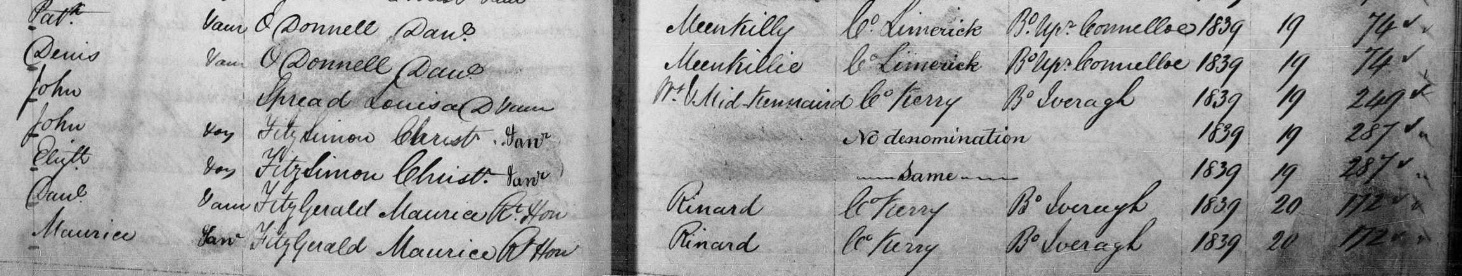 Patk Danl O Donnell Danl Meenkilly Co. Limerick Bo. Upr. Connelloe 1839 19 74
Denis Danl O Donnell Danl Meenkillie Co Limerick Bo Upr Connelloe 1839 19 74
John Spread Louisa D Wt. Mid Co Kerry Bo Iveragh 1839 19 249
John FitzSimon Christ. No denomination 1839 19 287
Elizth FitzSimon Christ. Same 1839 19 287
Danl FitzGerald Maurice Rt. Hon Rinard Co Kerry Bo Iveragh 1839 20 172
Maurice FitzGerald Maurice Rt Hon Rinard Co Kerry Bo Iveragh 1839 20 172